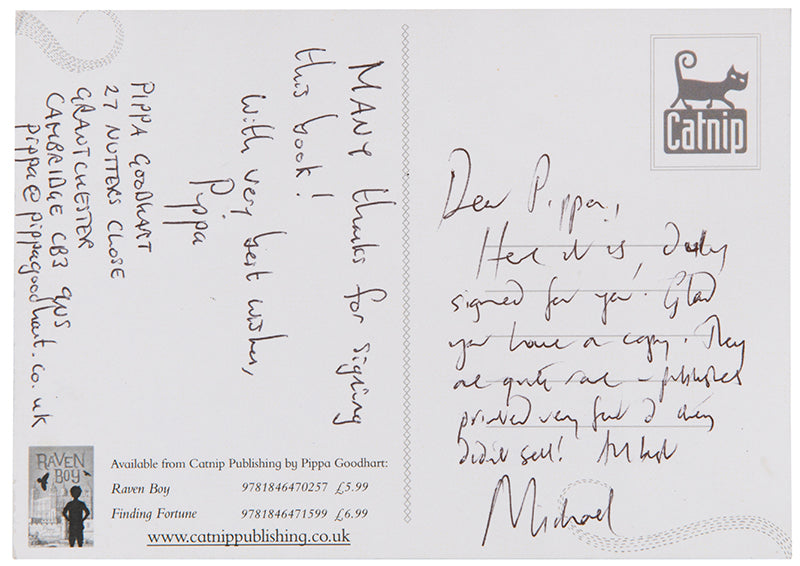 MANY thanks for signing
this book!
With very best wishes,
Pippa
PIPPA GOODHART
27 NUTTERS CLOSE
GRANTCHESTER
CAMBRIDGE CB3 9NS
pippa@pippagoodhart.co.uk
RAVEN
BOY
Available from Catnip Publishing by Pippa Goodhart:
Raven Boy 9781846470257 £5.99
Finding Fortune 9781846471599 £6.99
www.catnippublishing.co.uk
Catnip
Dear Pippa,
Here it is, duly
signed for you. Glad
you have a copy. They
are quite rare - publishers
printed very few & they
didn't sell! All best
Michael